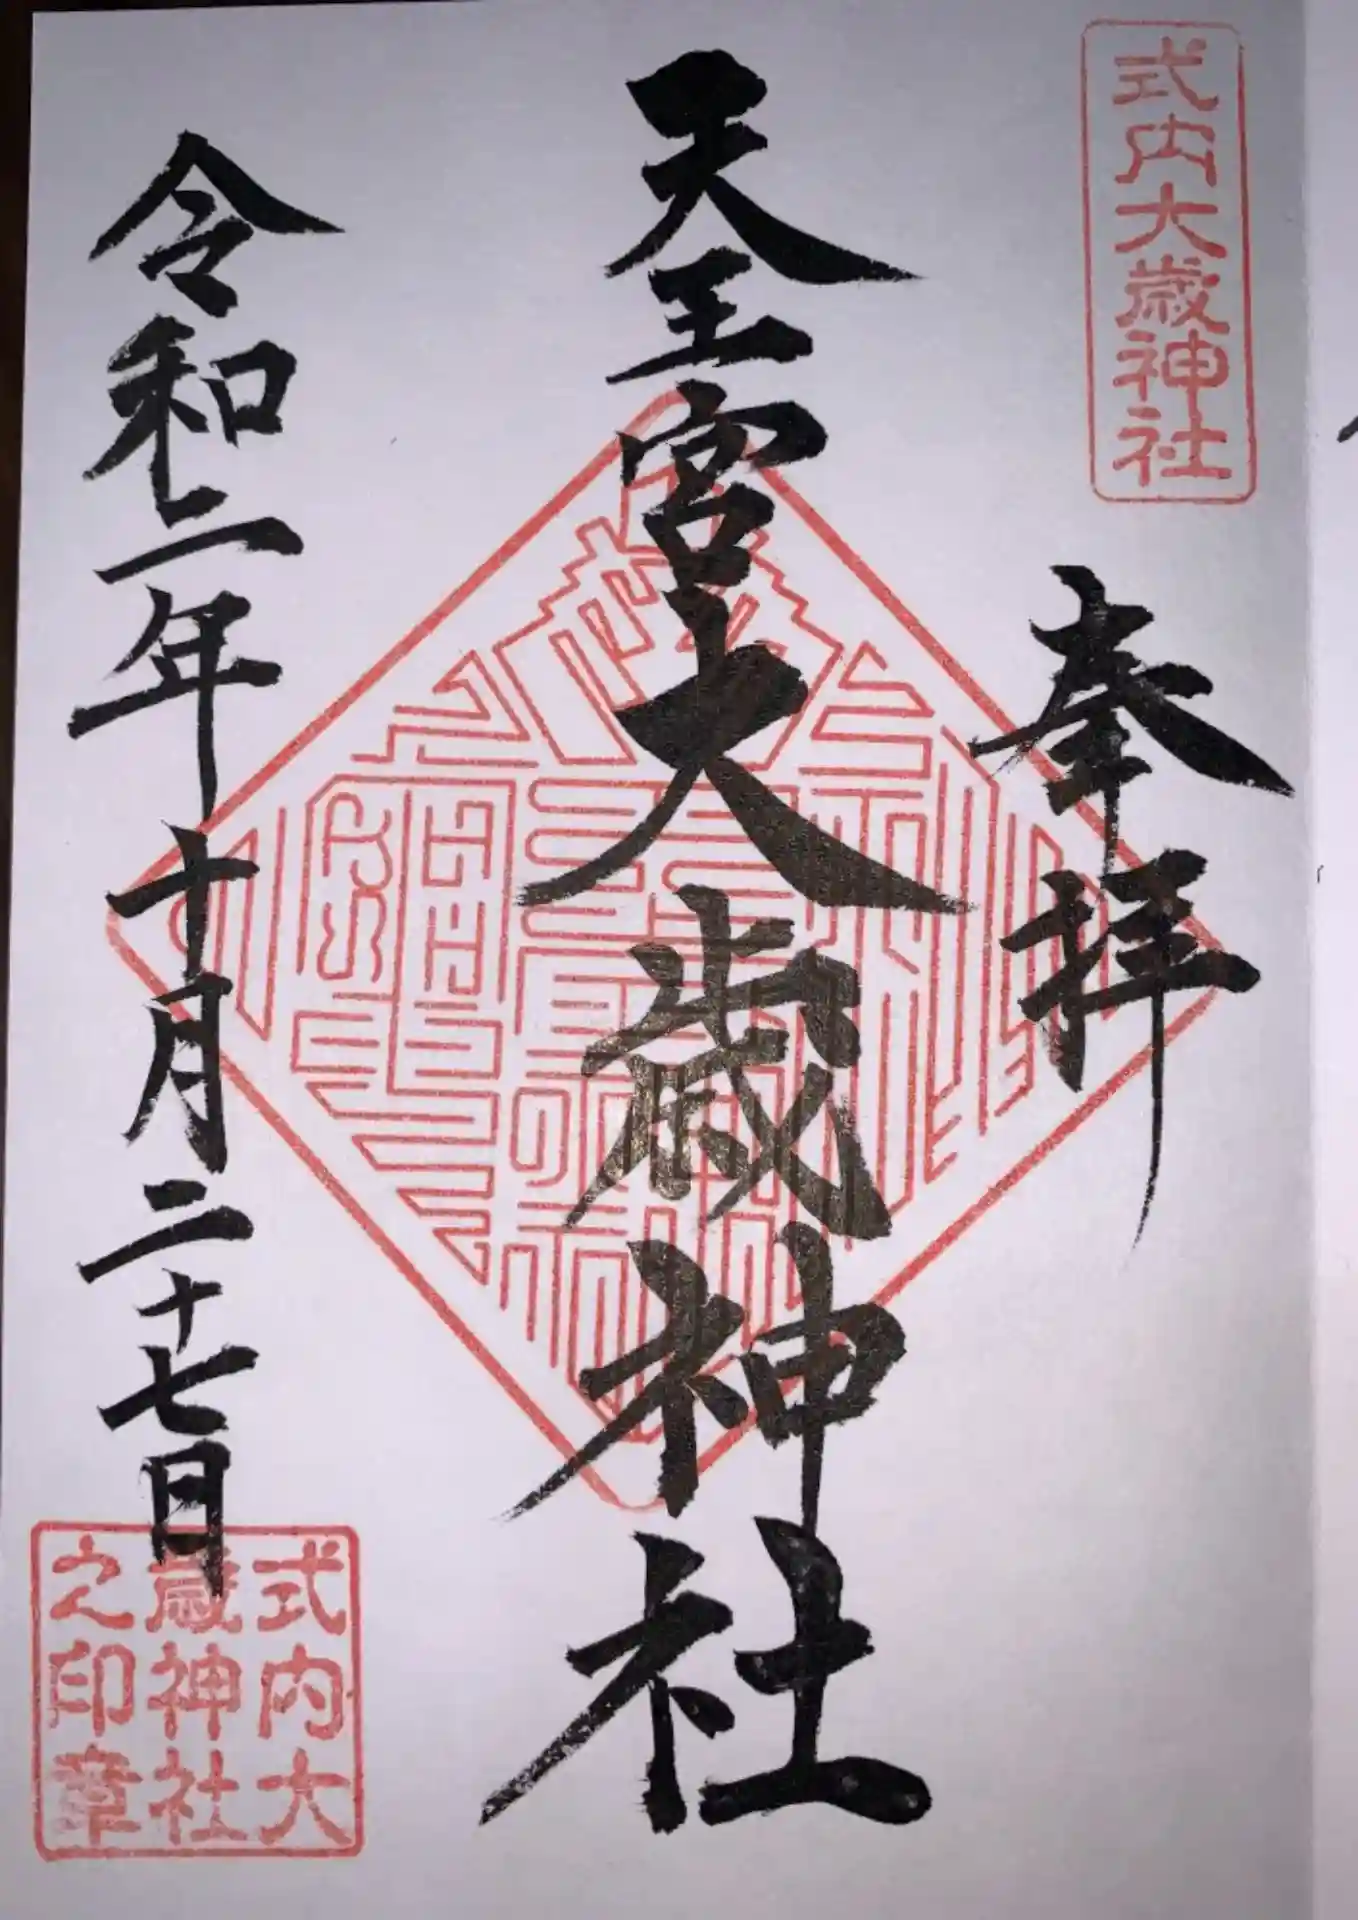 式内大歳神社
奉拝
天王宮大歳神社
令和二年十月二十七日
式内大
歳神社
之印章